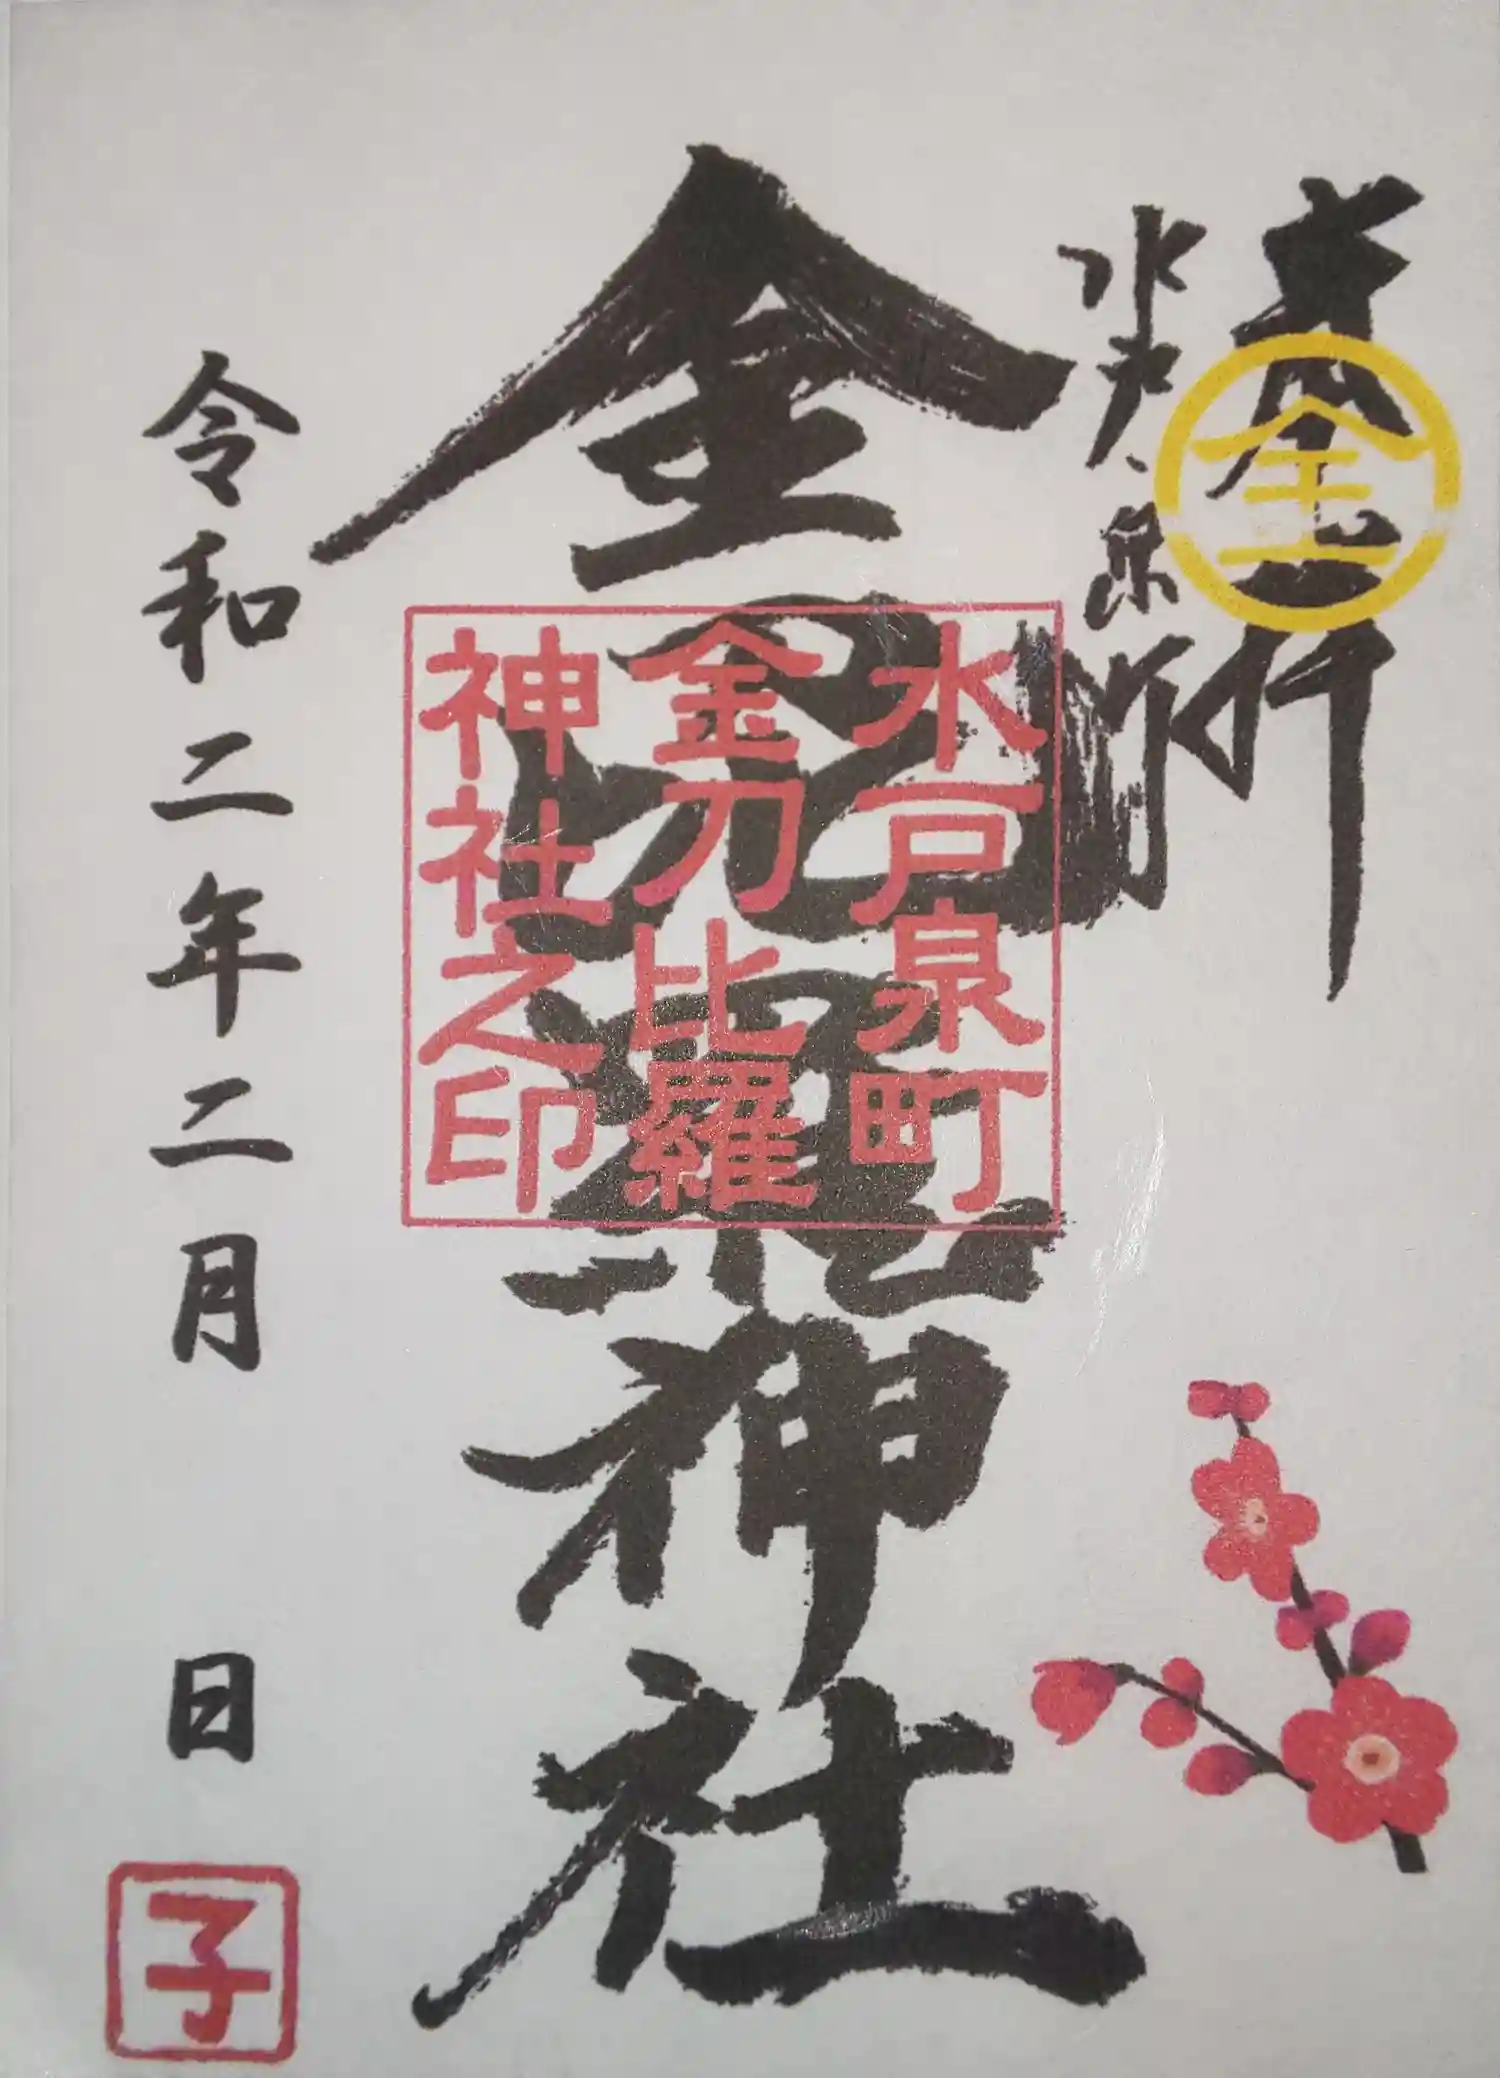 奉拝
水戸、泉町
金刀比羅神社
水戸泉町
金刀比羅
神社之印
金
令和二年二月 日
子